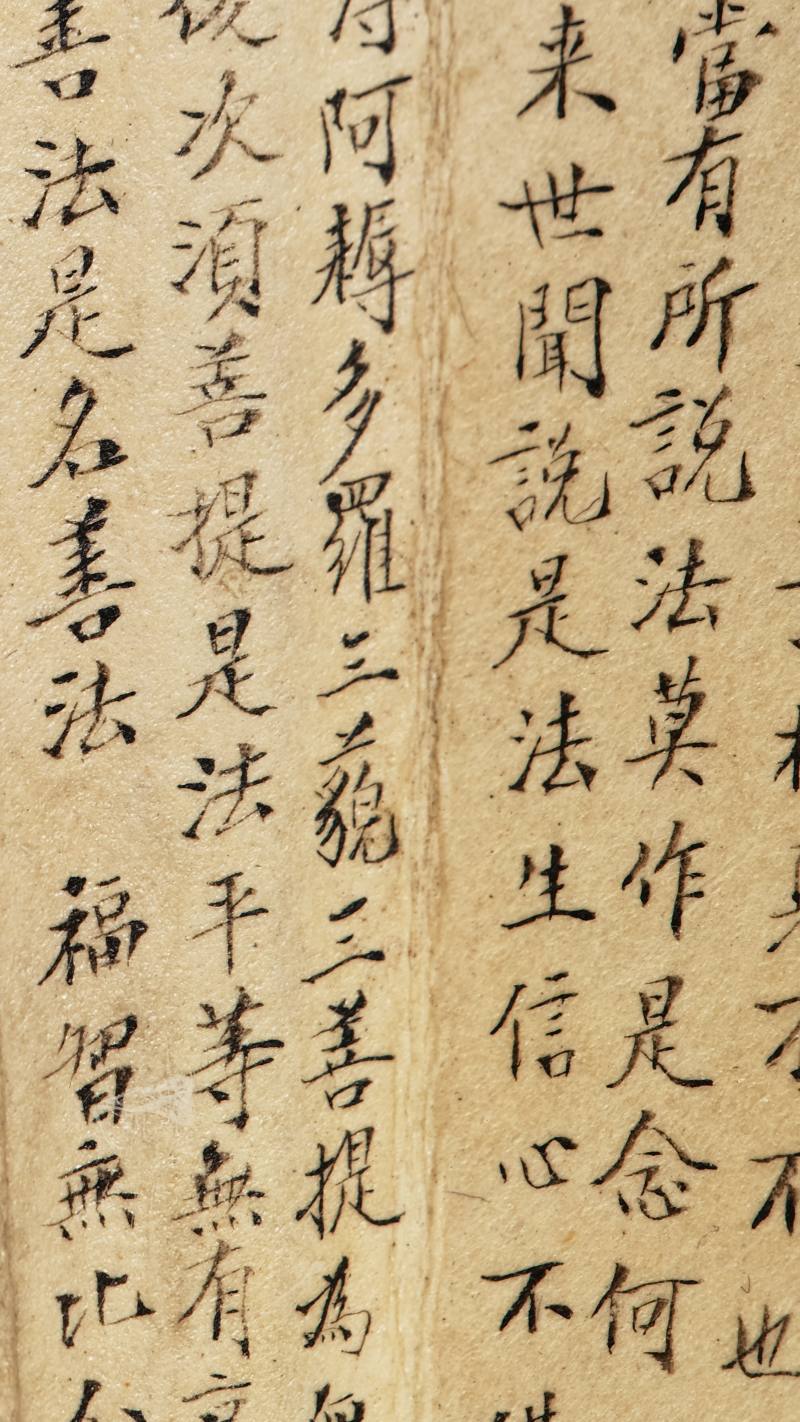 不
也
當有所説法莫作是念何
来世聞説是法生信心不
得阿耨多羅三藐三菩提為
復次湏菩提是法平等無有髙
善法是名善法 福智無比分